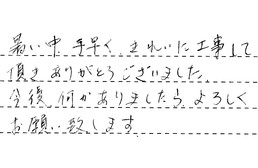 暑い中 手早く きれいに工事して
頂き ありがとうございました。
今後 何かありましたら よろしく
お願い致します